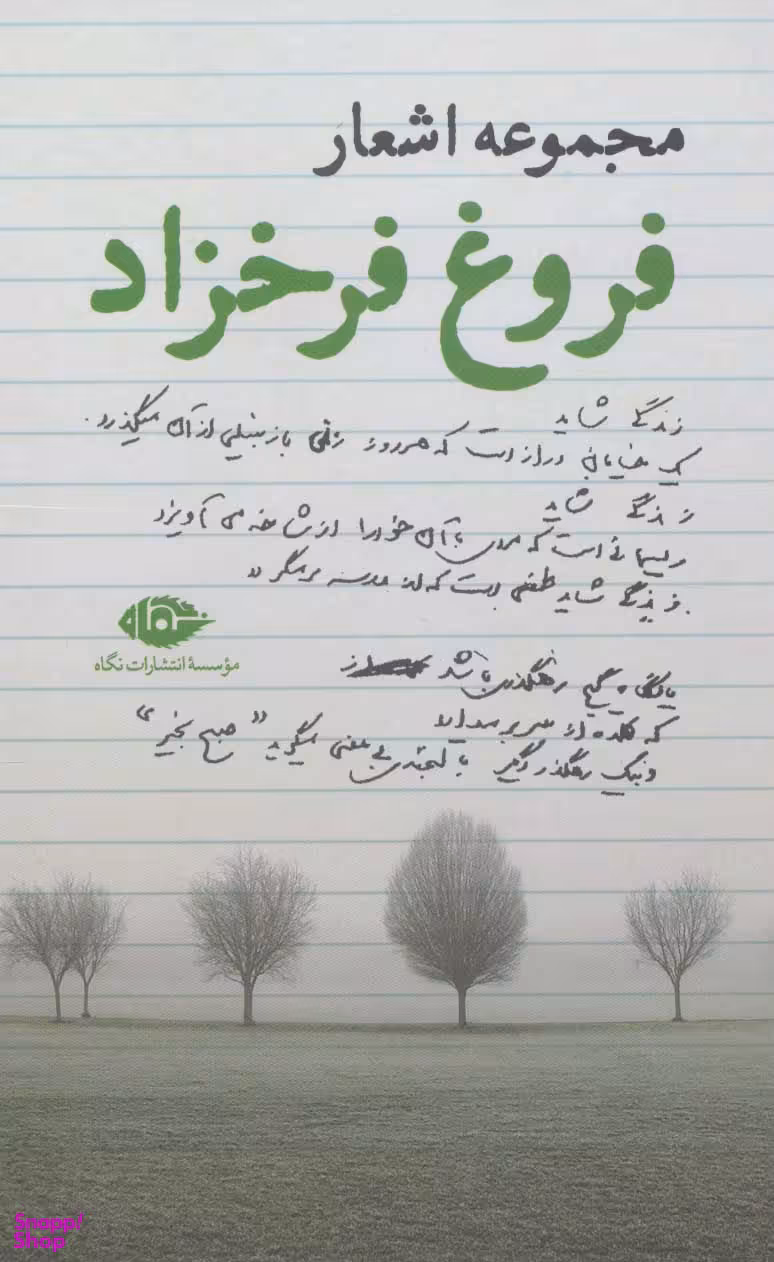 مجموعه اشعار
فروغ فرخزاد
زندگی شاید
یک خیابان دراز است که هر روز زنی با زنبیلی از آن میگذرد.
زندگی شاید
ریسمانی است که مردی با آن خود را از شاخه می آویزد
زندگی شاید طفلی است که از مدرسه برمیگردد
مؤسسهٔ انتشارات نگاه
یا نگاه گیج رهگذری باشد
که کلاه از سر بر میدارد
و بیک رهگذر دیگر با لبخندی بی معنی میگوید "صبح بخیر"
Snapp!
Shop